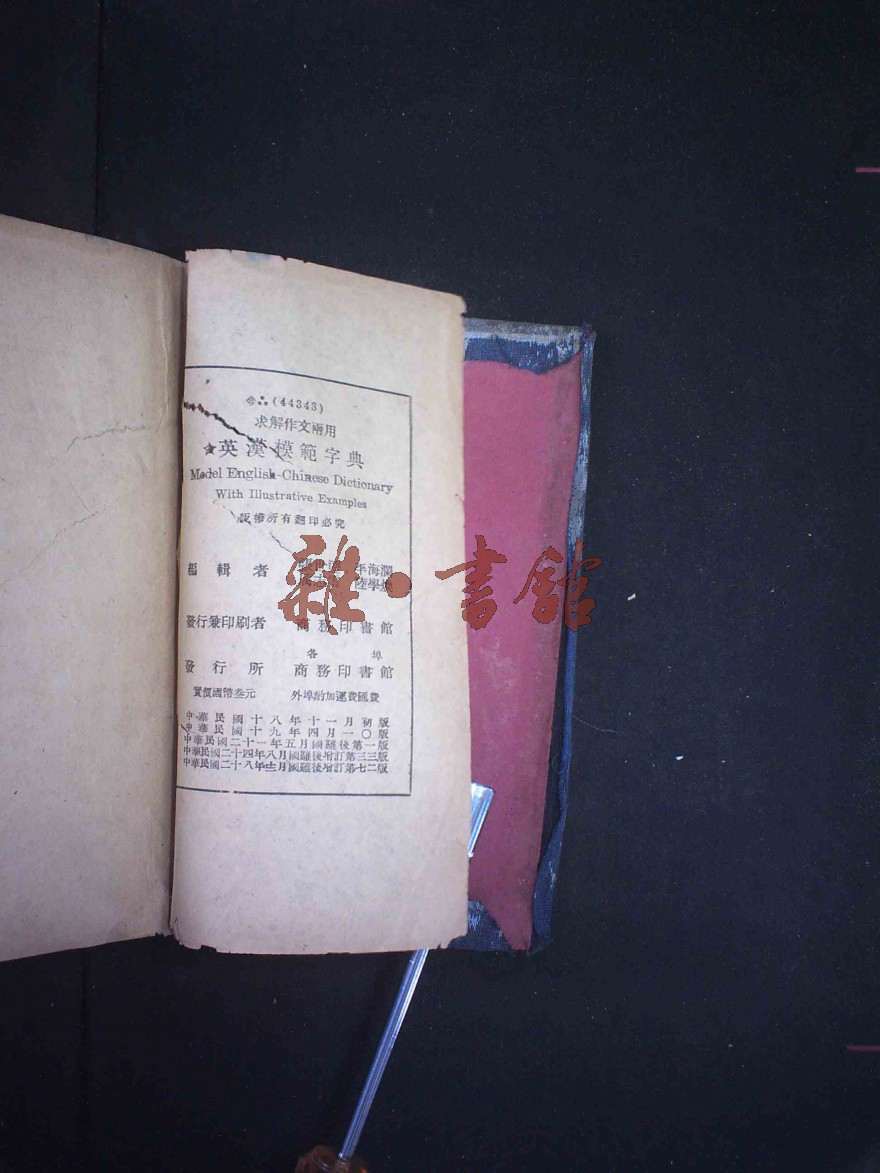 (44343)
求解作文兩用
英漢模範字典
Model English-Chinese Dictionary
With Illustrative Examples
版權所有翻印必究
編輯者
海瀾
陸學
發行兼印刷者 商務印書館
各埠
發行所 商務印書館
實價國幣叁元 外埠酌加運費匯費
中華民國十八年十一月初版
中華民國十九年四月一〇版
中華民國二十一年五月國難後第一版
中華民國二十四年八月國難後增訂第三三版
中華民國二十八年十二月國難後增訂第七二版
雜·書館